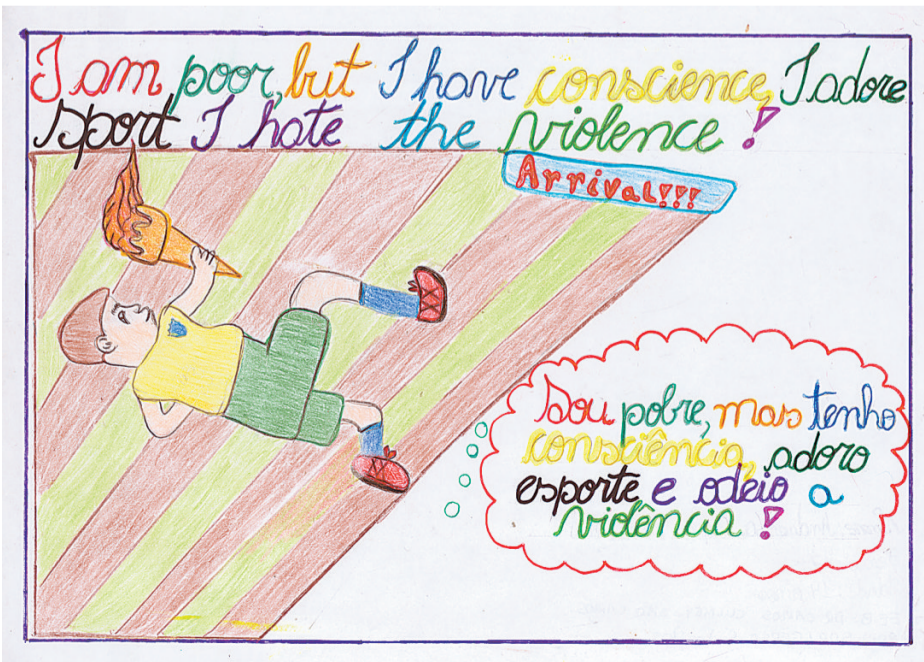 I am poor, but I have conscience, I adore
sport I hate the violence!
Arrival!!!
Sou pobre, mas tenho
consciência, adoro
esporte e odeio a
violência!